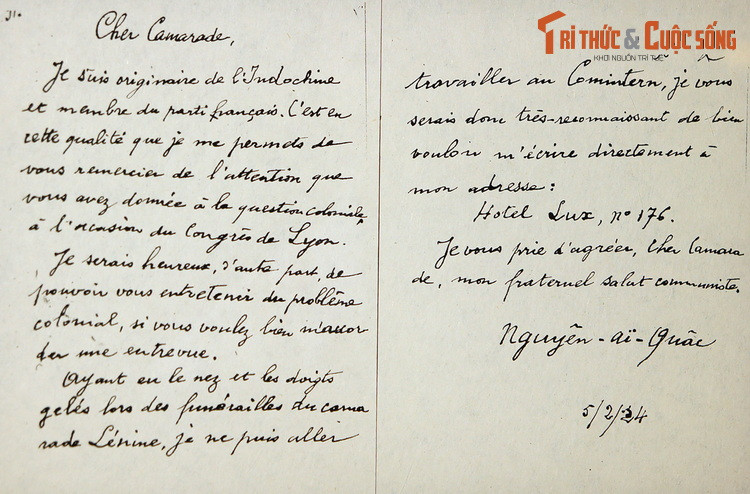 31.
Cher Camarade,
Je suis originaire de l'Indochine
et membre du parti français. C'est en
cette qualité que je me permets de
vous remercier de l'attention que
vous avez donnée à la question coloniale
à l'occasion du Congrès de Lyon.
Je serais heureux, d'autre part, de
pouvoir vous entretenir du problème
colonial, si vous voulez bien m'accor
der une entrevue.
Ayant eu le nez et les doigts
gelés lors des funérailles du cama
rade Lénine, je ne puis aller
TRI THỨC & CUỘC SỐNG
KHƠI NGUỒN TRÍ THỨC
travailler au Comintern, je vous
serais donc très-reconnaissant de bien
vouloir m'écrire directement à
mon adresse:
Hotel Lux, n° 176.
Je vous prie d'agréer, Cher Camara
de, mon fraternel salut communiste.
Nguyên-aï-Quâc
5/2/24